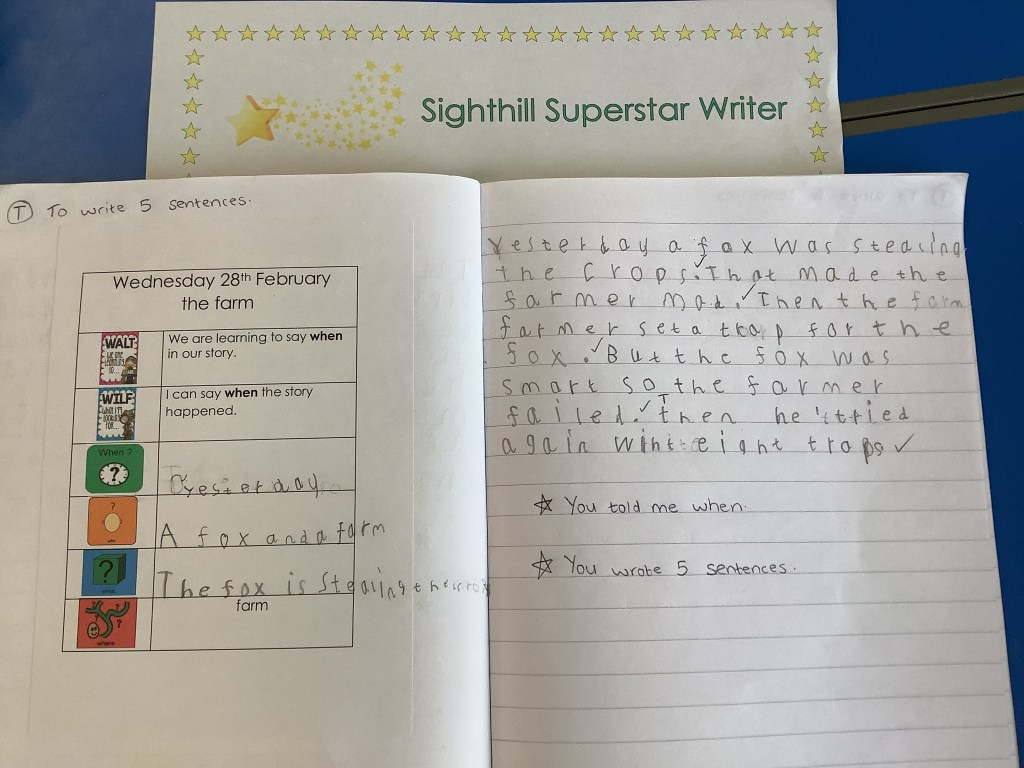 Sighthill Superstar Writer
T To write 5 sentences.
Wednesday 28th February
the farm
WALT
We are learning to say when
in our story.
WILF
I can say when the story
happened.
When ?
?
yesterday
?
A fox and a farm
?
The fox is stealing the
?
where
farm
Yesterday a fox was stealing
the crops. That made the
farmer mad. Then the farm
farmer set a trap for the
fox. But the fox was
smart so the farmer
failed. Then he tried
again eight traps
You told me when.
You wrote 5 sentences.